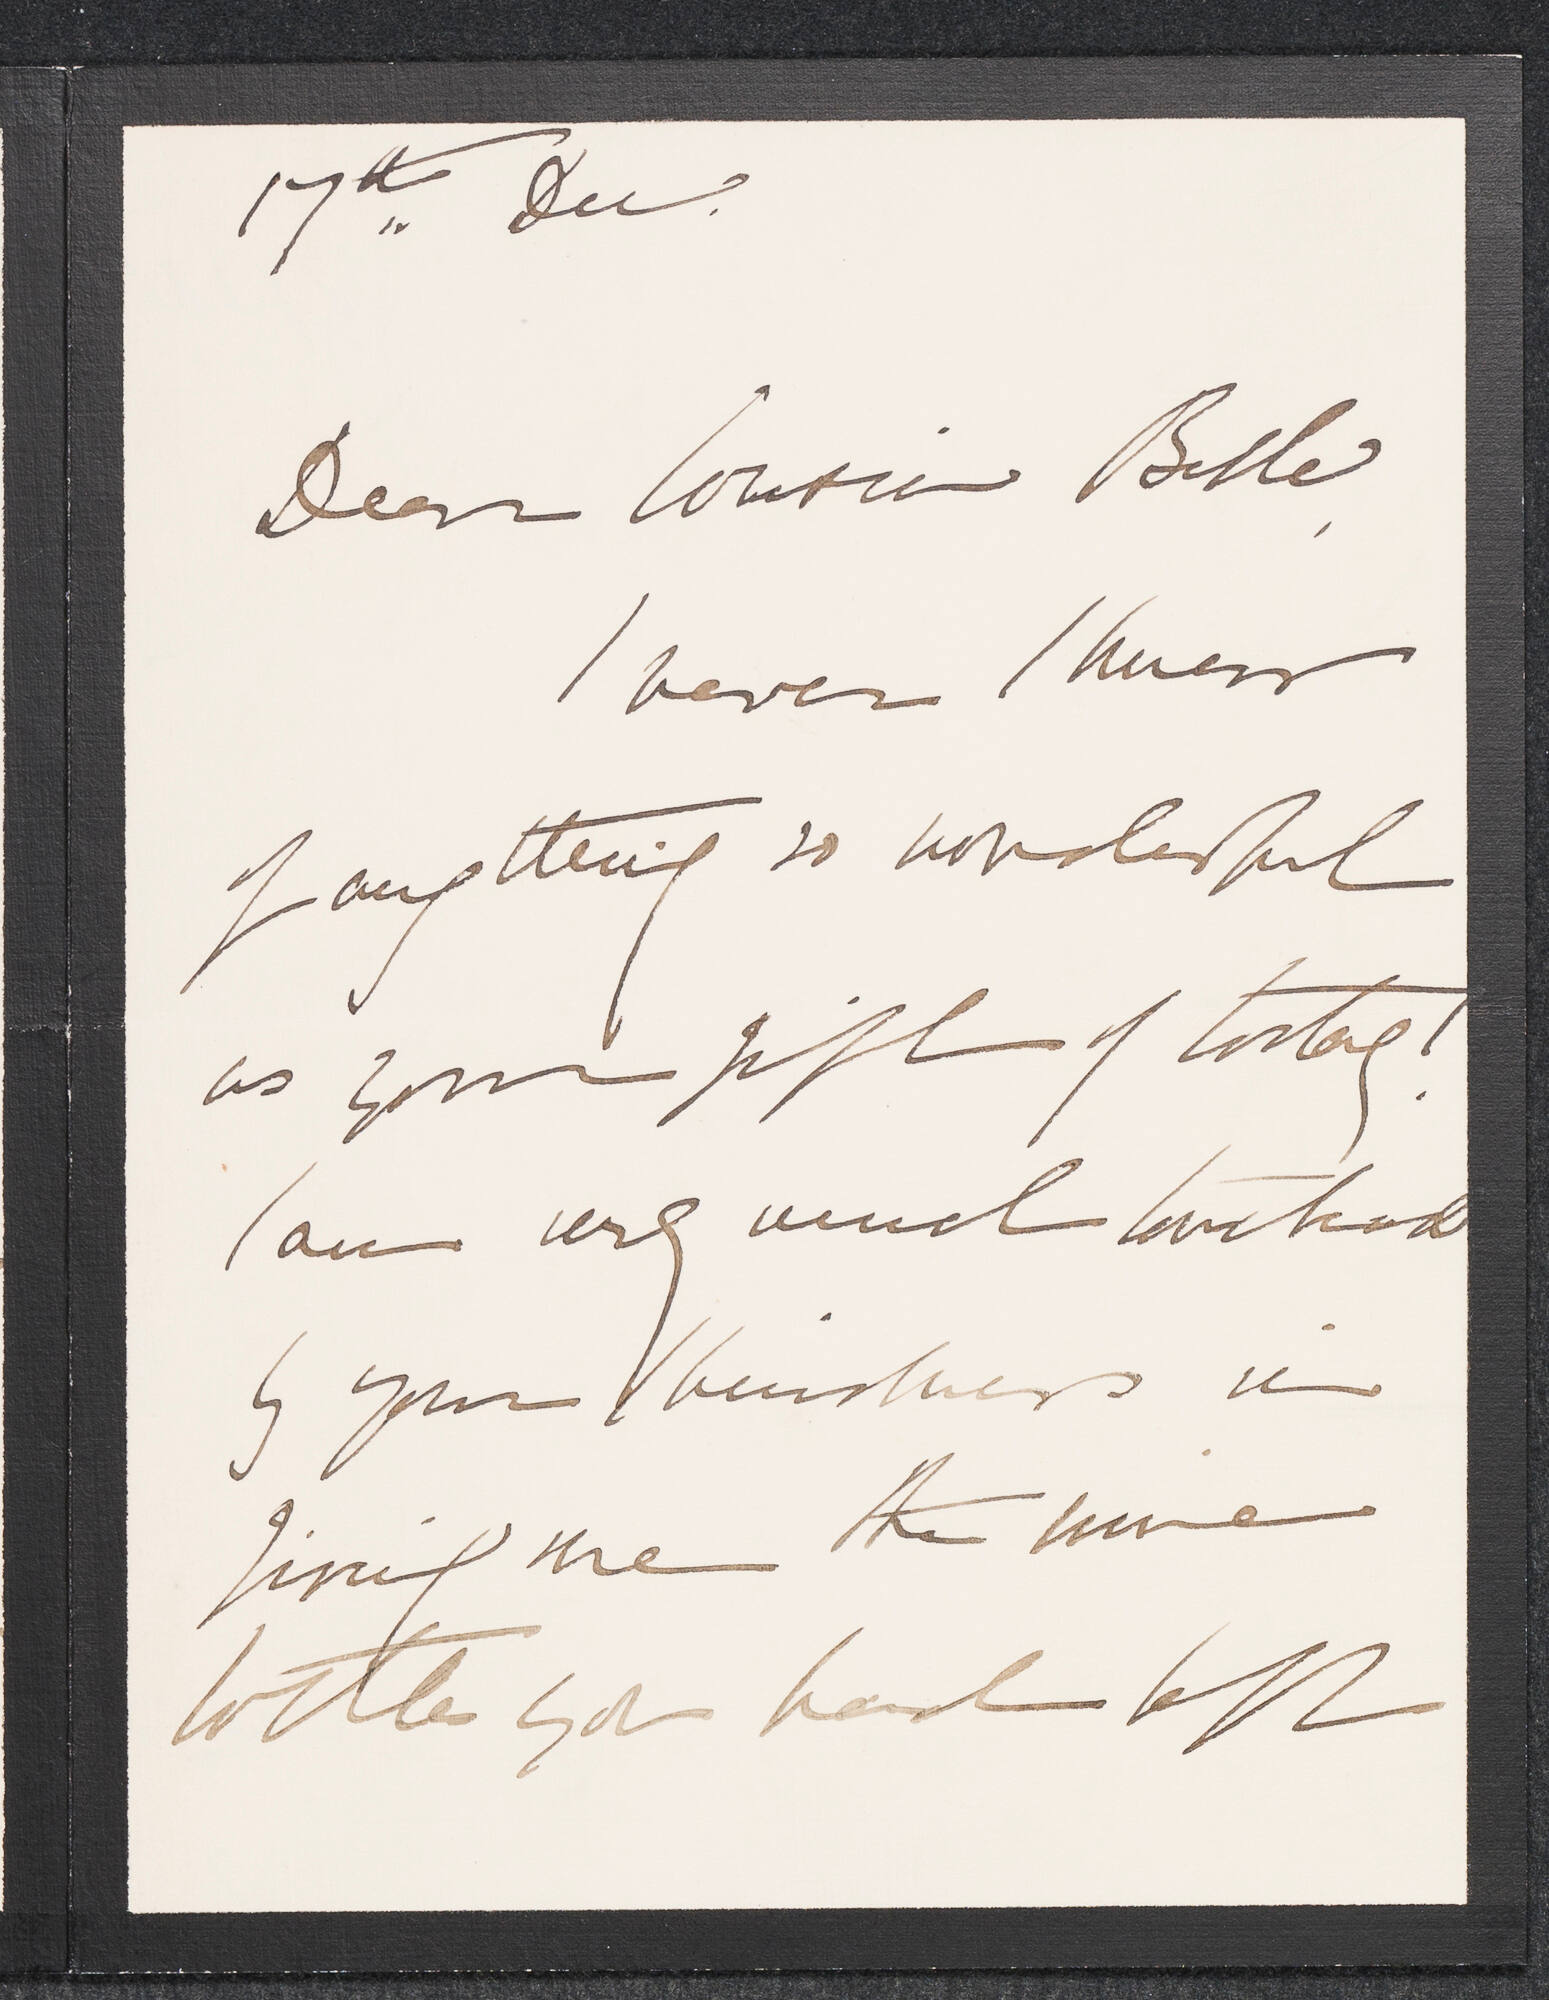 17th Dec.
Dear Cousin Belle,
I never knew
of anything so wonderful
as your gift of today!
I am very much touched
by your kindness in
giving me the nine
bottles you have left